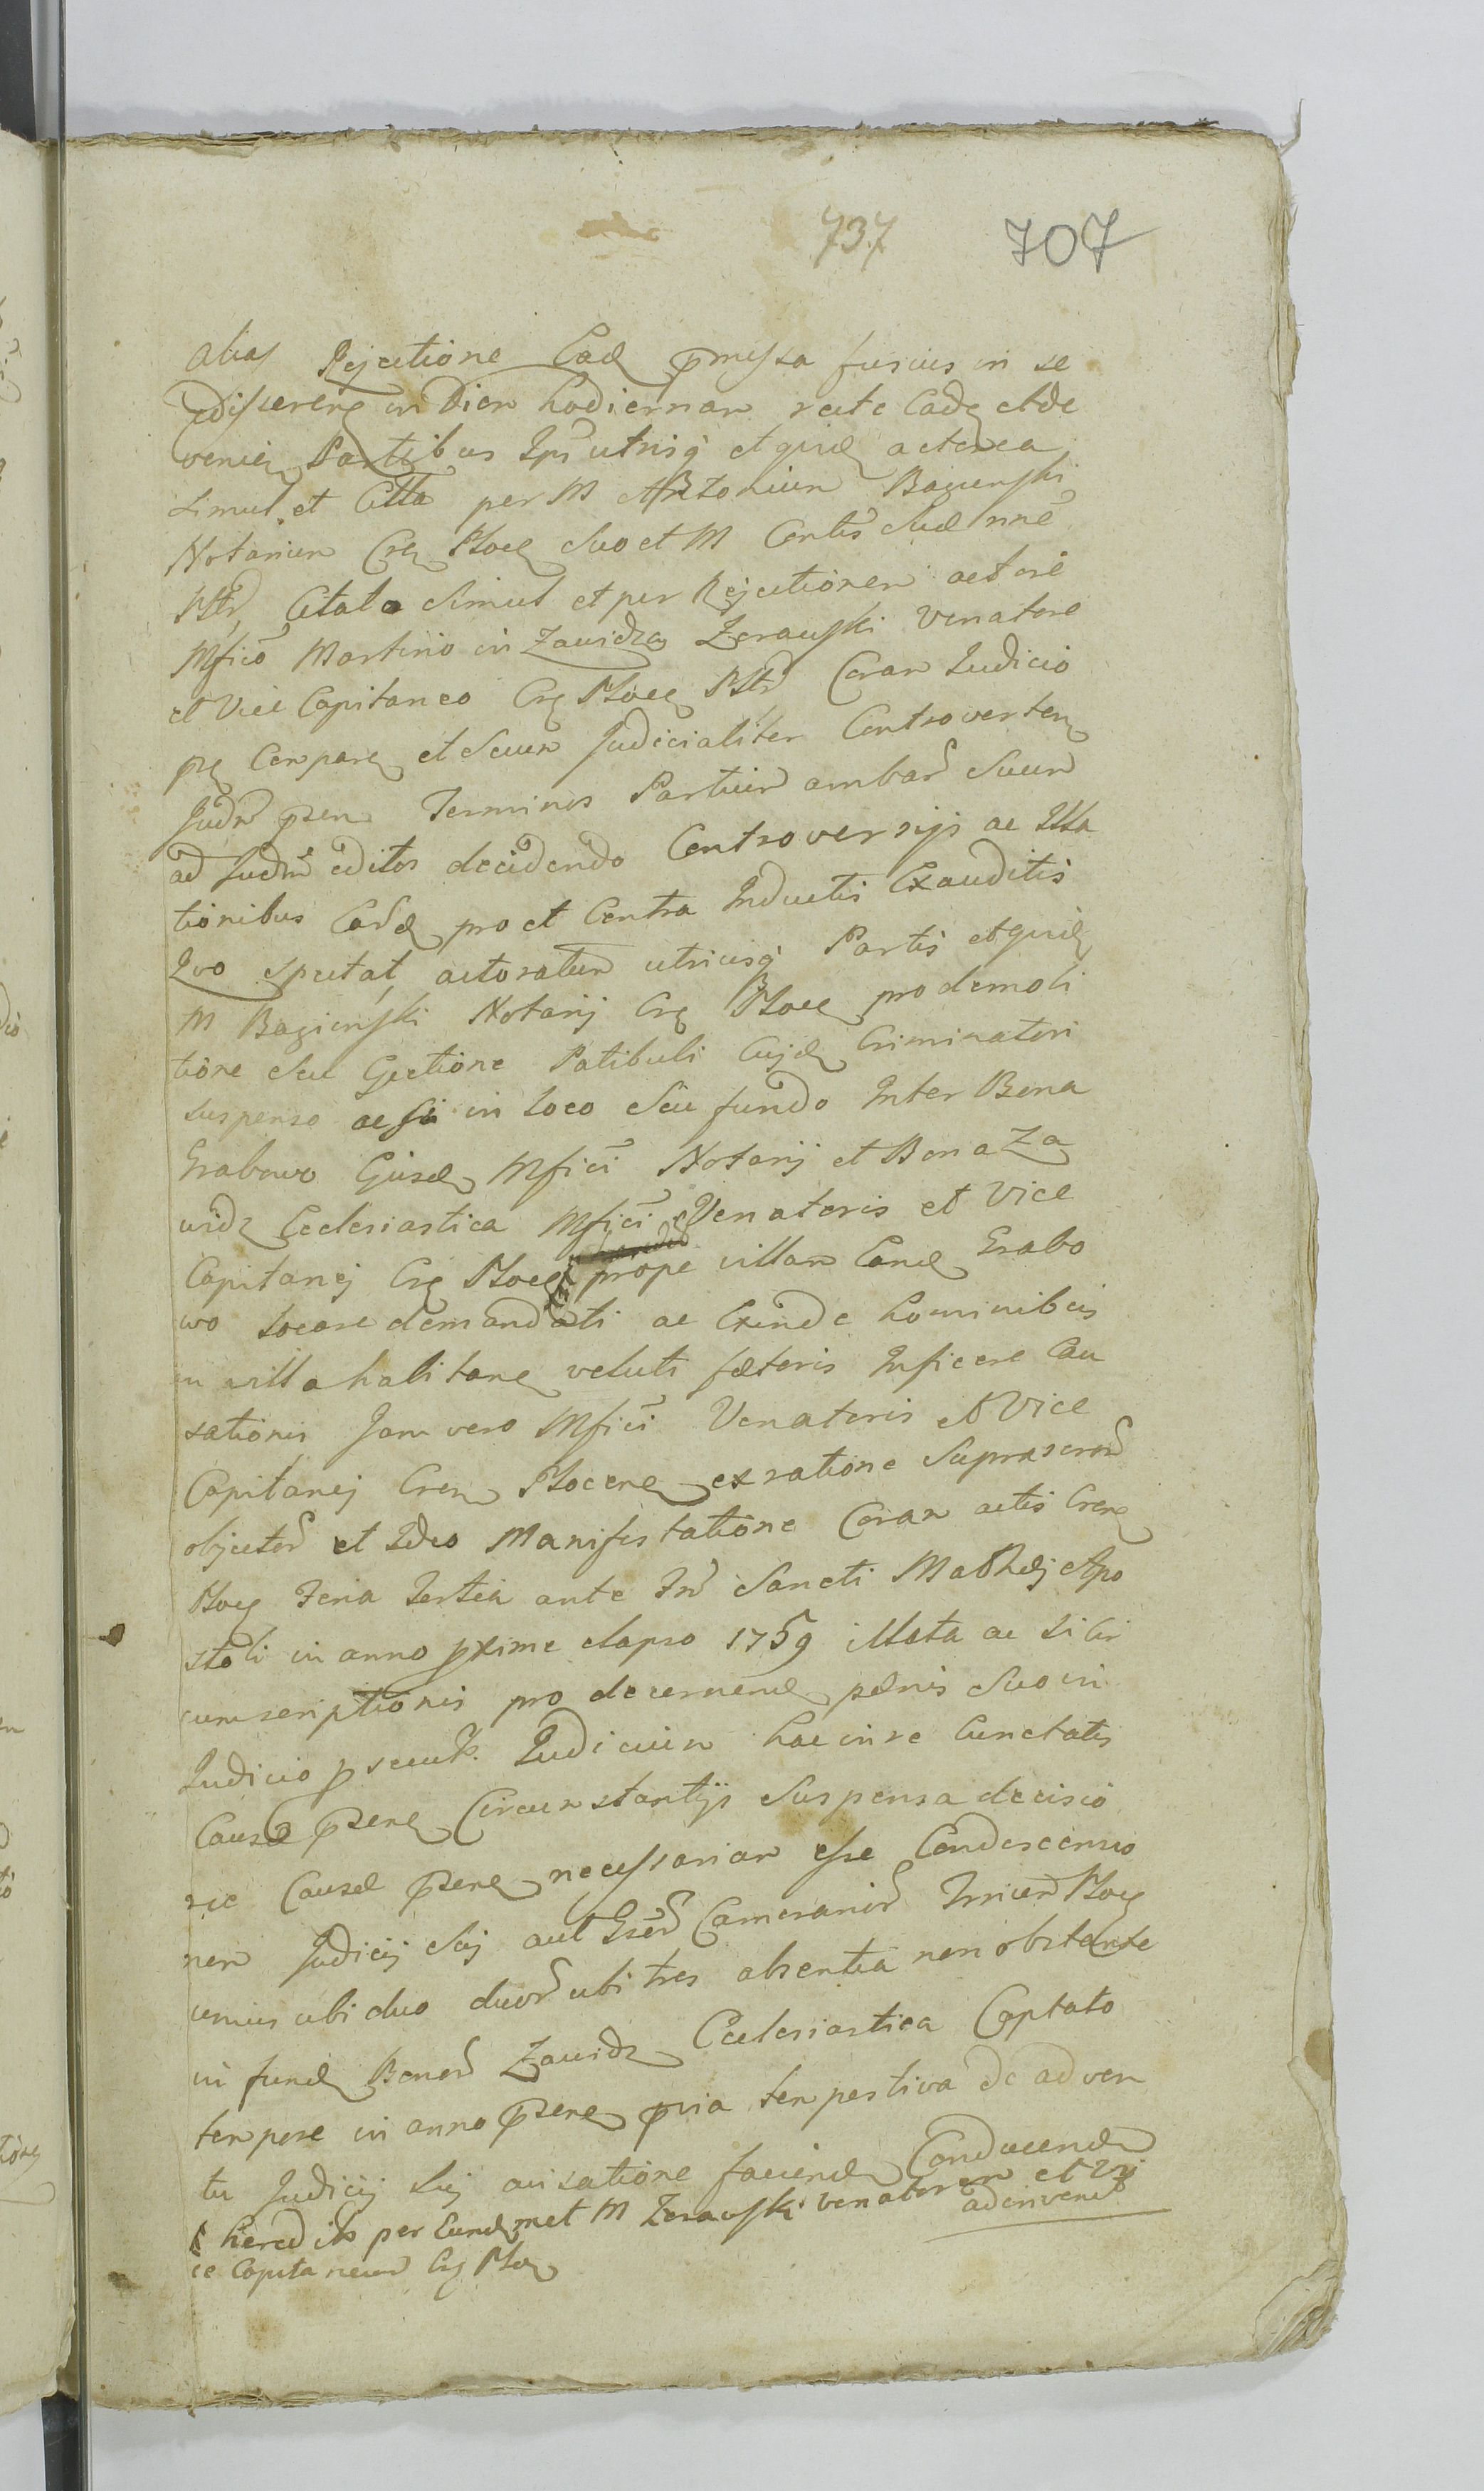 737 707
alias Rejectione Ead p̄missa fusius in se
disserere in Diem hodiernam recte Cade et de
venien Partibus Ips utrisq et quid actorea
simul et Citta per M Antonium Bagienski
Notarium Cre Ploce Suo et M Contis Suæ nne
Citato Simul et per Rejectionem actore
Mfico Martino in Zawidz Zerauski Venatore
et Vice Capitaneo Cre Ploce Coram Iudicio
pn Compare et Suum Judicialiter Controverten
Judm p̄sen Terminos Partium ambar Suum
ad Judm editos decidendo Controversijs ac Illa
tionibus Ead pro et Contra Inductis Exauditis
Quo spectat actoratum utriusq Partis et quid
M Bagienski Notarij Cre Ploce pro demoli
tione Seu Ejectione Patibuli Cujd Criminatori
suspenso ac in loco Seu fundo Inter Bona
Grabowo Ejusd Mfici Notarij et Bona Za
widz Ecclesiastica Mfici Venatoris et Vice
Capitanej Cre Ploce prope villam Eand Grabo
wo locare demandati ac Exinde hominibus
in villa habitane veluti fætoris Inficere Cau
sationis Jam vero Mfici Venatoris et Vice
Capitanej Cren Plocene ex ratione Suprascror
objector et Ideo Manifestatione Coram actis Crene
Ploce Feria Tertia ante Fm Sancti Mathæj Apo
stoli in anno pxime elapso 1759 illata ac si Cir
cumscriptionis pro decernend pænis Suo in
Judicio p Judicium hac in re Cunctatis
Causæ p̄sene Circumstantijs Suspensa decisio
ne Causæ p̄sene necessariam esse Condescensio
nem Judicij Sui aut Camerarior Ploce
unius ubi duo duor ubi tres absentia non obstante
in fund Bonor Zawidz Ecclesiastica Captato
tempore in anno p̄sene p̄via tempestiva de adven
tu Judicij Sui avisatione faciend Conducend
adinvenit
hered per Eundmet M Zerauski Venatorem et Vi
ce Capitaneum Cre Ploce